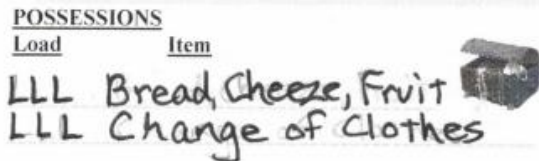 POSSESSIONS
Load Item
LLL Bread, Cheeze, Fruit
LLL Change of Clothes